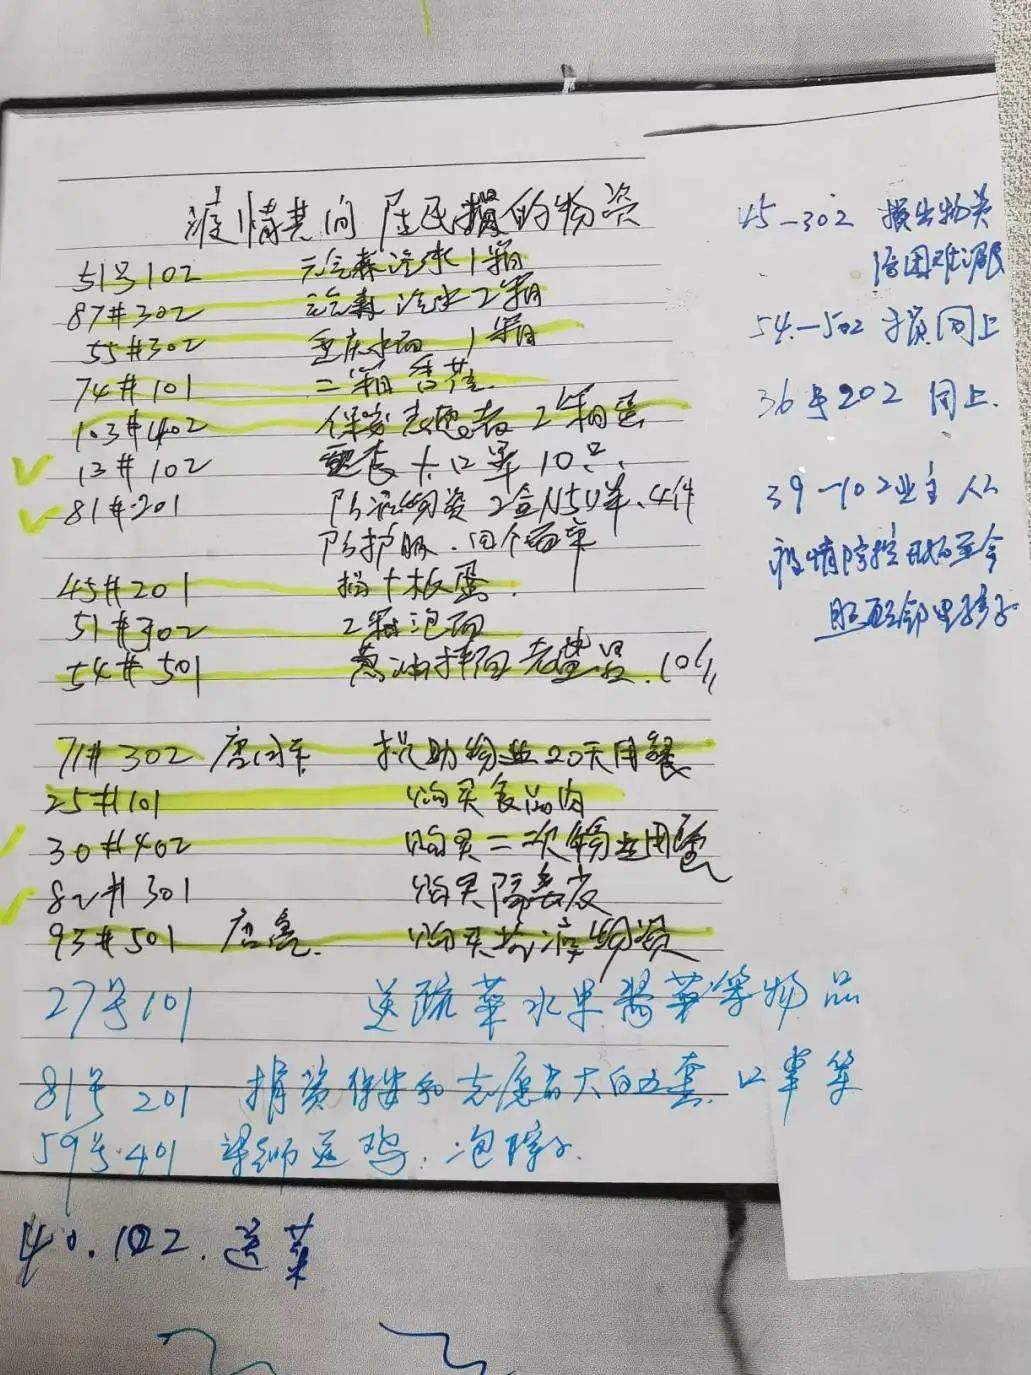 疫情其间居民捐的物资
51号102 元气森汽水1箱
87#302 元气森汽水2箱
55#302 重庆小面 1箱
74#101 二箱香芷
103#402 保安志愿者2箱蛋
13#102 套 大口罩10只.
81#201 防疫物资2盒N95口罩、4件
防护服.四个面罩
45#201 捐十板蛋.
51#302 2箱泡面
54#501 葱油拌面 10份
71#302 唐 捐助物业20天用餐
25#101 购买食品肉
30#402 购买二次物业用餐
82#301 购买隔离衣
93#501 唐 购买抗疫物资
27号101 送蔬菜水果酱菜等物品
81号201 捐资保安和志愿者大白五套.口罩等
59号.401 梁师送鸡.泡粽子.
40.102.送菜
45-302 捐出物资
给困难居民
54-502 捐同上
36号202 同上.
39-102业主从
疫情防控开始至今
照顾邻里孩子